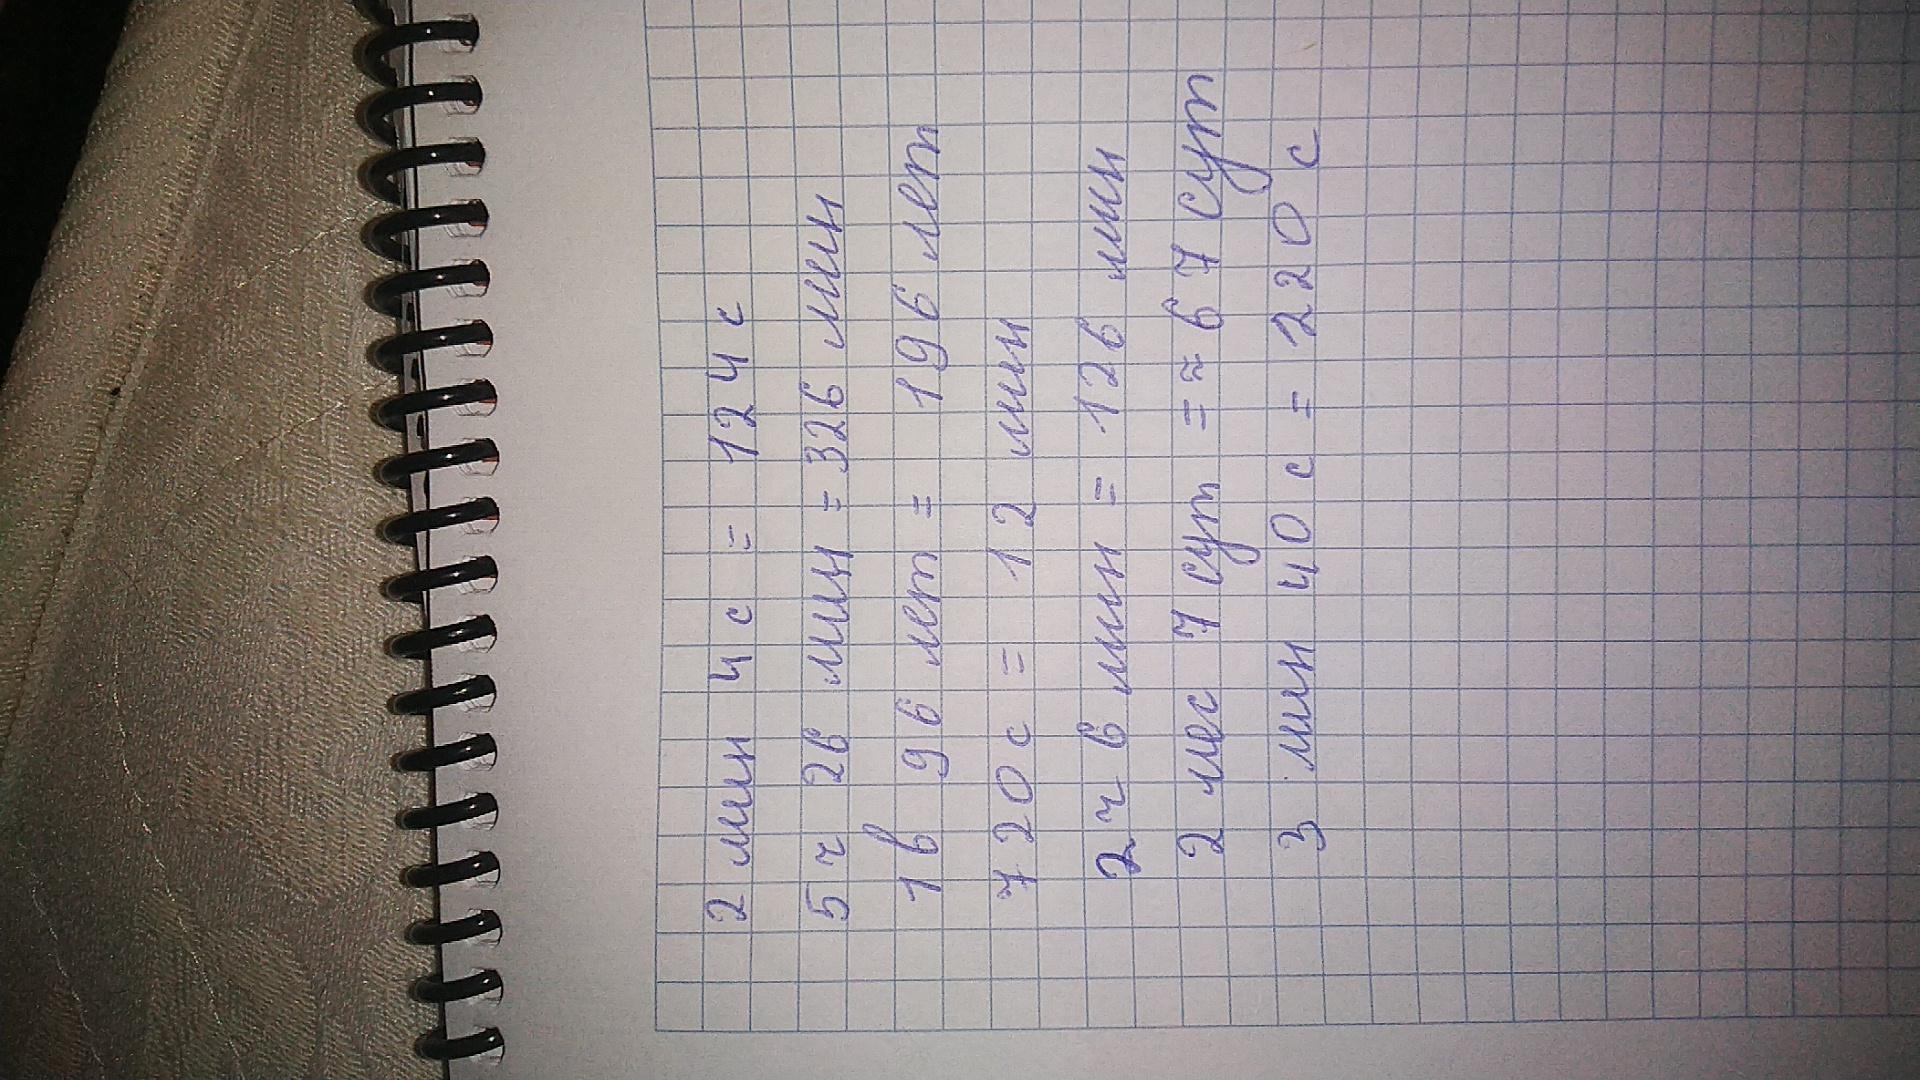 2 мин 4 с = 124 с
5 ч 26 мин = 326 мин
1 в 96 лет = 196 лет
720 с = 12 мин
2 ч 6 мин = 126 мин
2 мес 7 сут = ≈ 67 сут
3 мин 40 с = 220 с